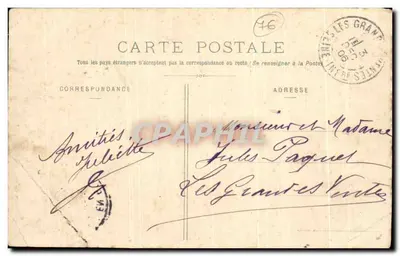 76
CARTE POSTALE
Tous les pays étrangers n'acceptent pas la correspondance au recto. (Se renseigner à la Poste)
CORRESPONDANCE
ADRESSE
Monsieur et Madame
Jules Paquet
Les Grandes Ventes
Amitiés
Juliette
LES GRANDES